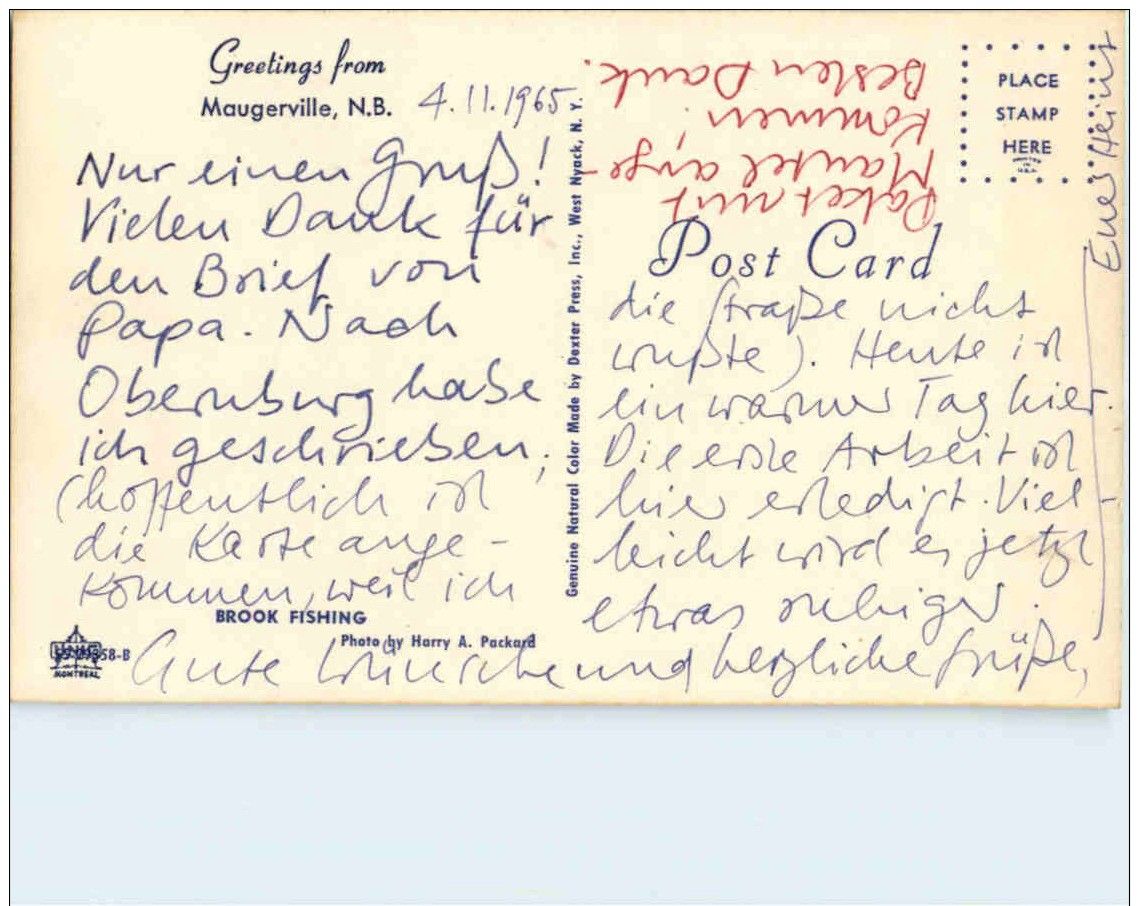 Greetings from
Maugerville, N.B.
4.11.1965
Nur einen Gruß!
Vielen Dank für
den Brief von
Papa. Nach
Obernburg habe
ich geschrieben,
(hoffentlich ist
die Karte ange-
kommen, weil ich
BROOK FISHING
Photo by Harry A. Packard
58-B
MONTREAL
Genuine Natural Color Made by Dexter Press, Inc., West Nyack, N. Y.
PLACE
STAMP
HERE
Post Card
die Straße nicht
wußte). Heute ist
ein warmer Tag hier.
Die erste Arbeit ist
hier erledigt. Viel-
leicht wird es jetzt
etwas ruhiger.
Gute Wünsche und herzliche Grüße,
Euer Heinz
Paket mit
Mantel ange-
kommen,
Besten Dank.